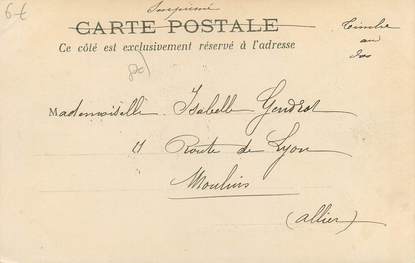 6€
Imprimé
CARTE POSTALE
Timbre
au
dos
Ce côté est exclusivement réservé à l'adresse
Mademoiselle Isabelle Gendrot
Route de Lyon
Moulins
(Allier)